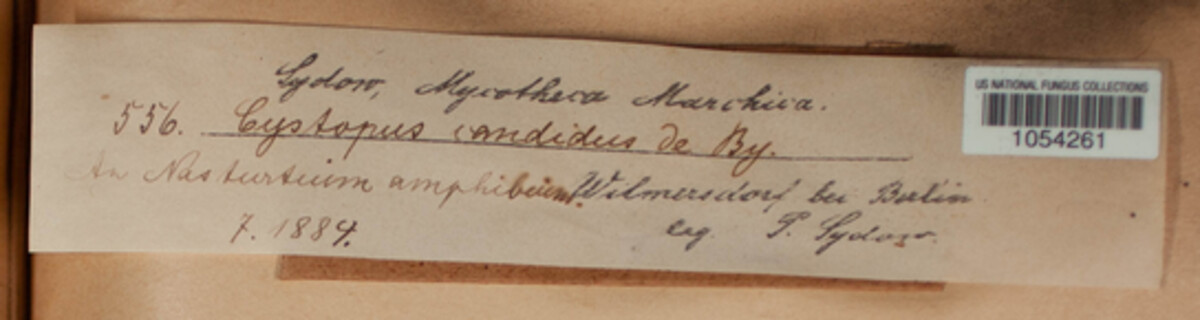 Sydow, Mycotheca Marchica.
556. Cystopus candidus de By.
An Nasturtium amphibium. Wilmersdorf bei Berlin
7. 1884. leg. P. Sydow.
US NATIONAL FUNGUS COLLECTIONS
1054261